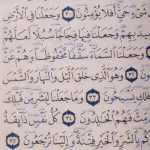 حَيٍّ أَفَلَا يُؤْمِنُونَ ٣٠ وَجَعَلْنَا فِي ٱلْأَرْضِ
بِهِمْ وَجَعَلْنَا فِيهَا فِجَاجًا سُبُلًا لَّعَلَّهُمْ
وَجَعَلْنَا ٱلسَّمَآءَ سَقْفًا مَّحْفُوظًا وَهُمْ عَنْ
٣٢ وَهُوَ ٱلَّذِي خَلَقَ ٱلَّيْلَ وَٱلنَّهَارَ وَٱلشَّمْسَ
يَسْبَحُونَ ٣٣ وَمَا جَعَلْنَا لِبَشَرٍ مِّن قَبْلِكَ
فَهُمُ ٱلْخَٰلِدُونَ ٣٤ كُلُّ نَفْسٍ ذَآئِقَةُ
بِٱلشَّرِّ وَٱلْخَيْرِ فِتْنَةً وَإِلَيْنَا تُرْجَعُونَ ٣٥